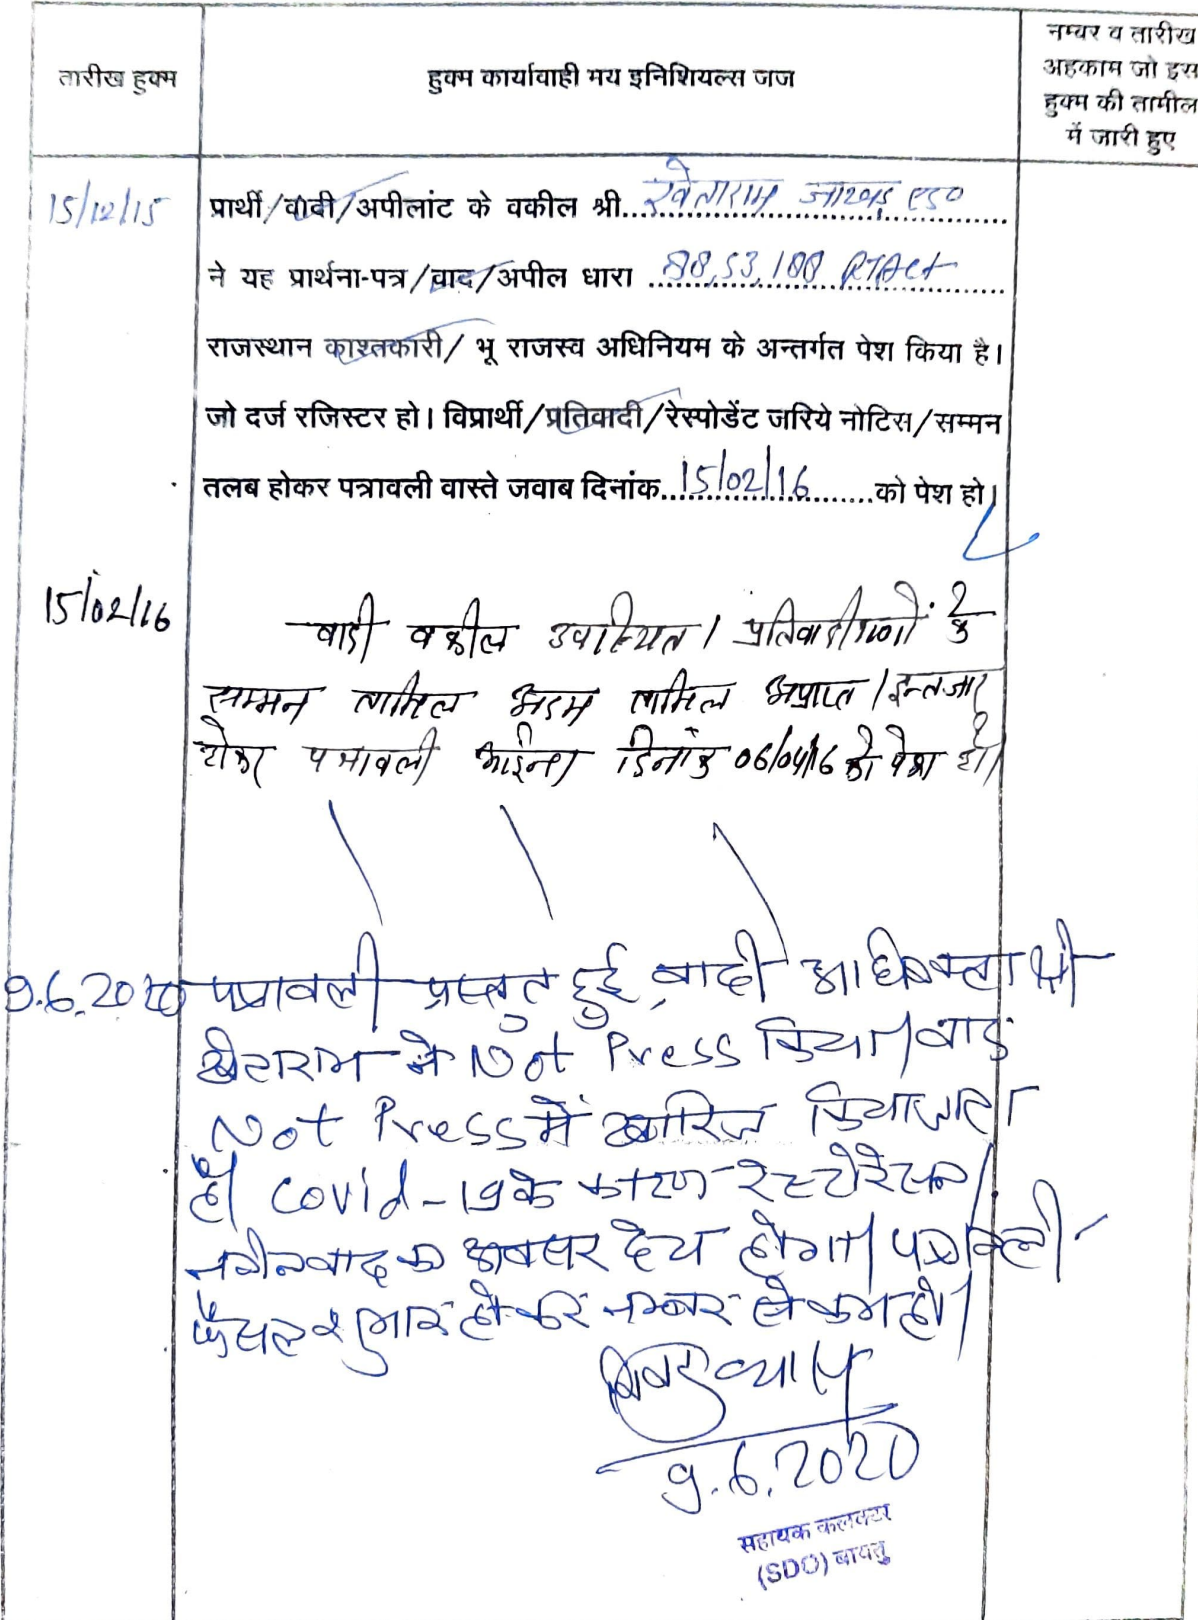 तारीख हुक्म
हुक्म कार्यावाही मय इनिशियल्स जज
नम्बर व तारीख
अहकाम जो इस
हुक्म की तामील
में जारी हुए
15/12/15
प्रार्थी/वादी/अपीलांट के वकील श्री खेताराम जाखड़ एड०
ने यह प्रार्थना-पत्र/वाद/अपील धारा 88,53,188 RTAct
राजस्थान काश्तकारी/ भू राजस्व अधिनियम के अन्तर्गत पेश किया है।
जो दर्ज रजिस्टर हो। विप्रार्थी/प्रतिवादी/रेस्पोडेंट जरिये नोटिस/सम्मन
तलब होकर पत्रावली वास्ते जवाब दिनांक 15/02/16 को पेश हो।
15/02/16
वादी वकील उपस्थित। प्रतिवादीगणों के
सम्मन तामिल अदम तामिल अप्राप्त। इन्तजार
होकर पत्रावली आईन्दा दिनांक 06/04/16 को पेश हो।
9.6.2020 पत्रावली प्रस्तुत हुई, वादी अधिवक्ता श्री
खेताराम ने Not Press किया। वाद
Not Press में खारिज किया जाता
है। Covid-19 के कारण रेस्टोरेसन/
नवीनवाद का अवसर देय होगा। पत्रावली
फैसल शुमार होकर नम्बर से कम हो।
व्यास
9.6.2020
सहायक कलक्टर
(SDO) बायतु